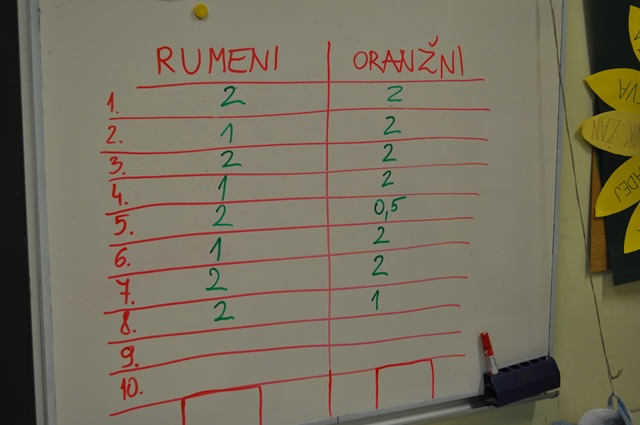 RUMENI ORANŽNI
1. 2 2
2. 1 2
3. 2 2
4. 1 2
5. 2 0,5
6. 1 2
7. 2 2
8. 2 1
9.
10.